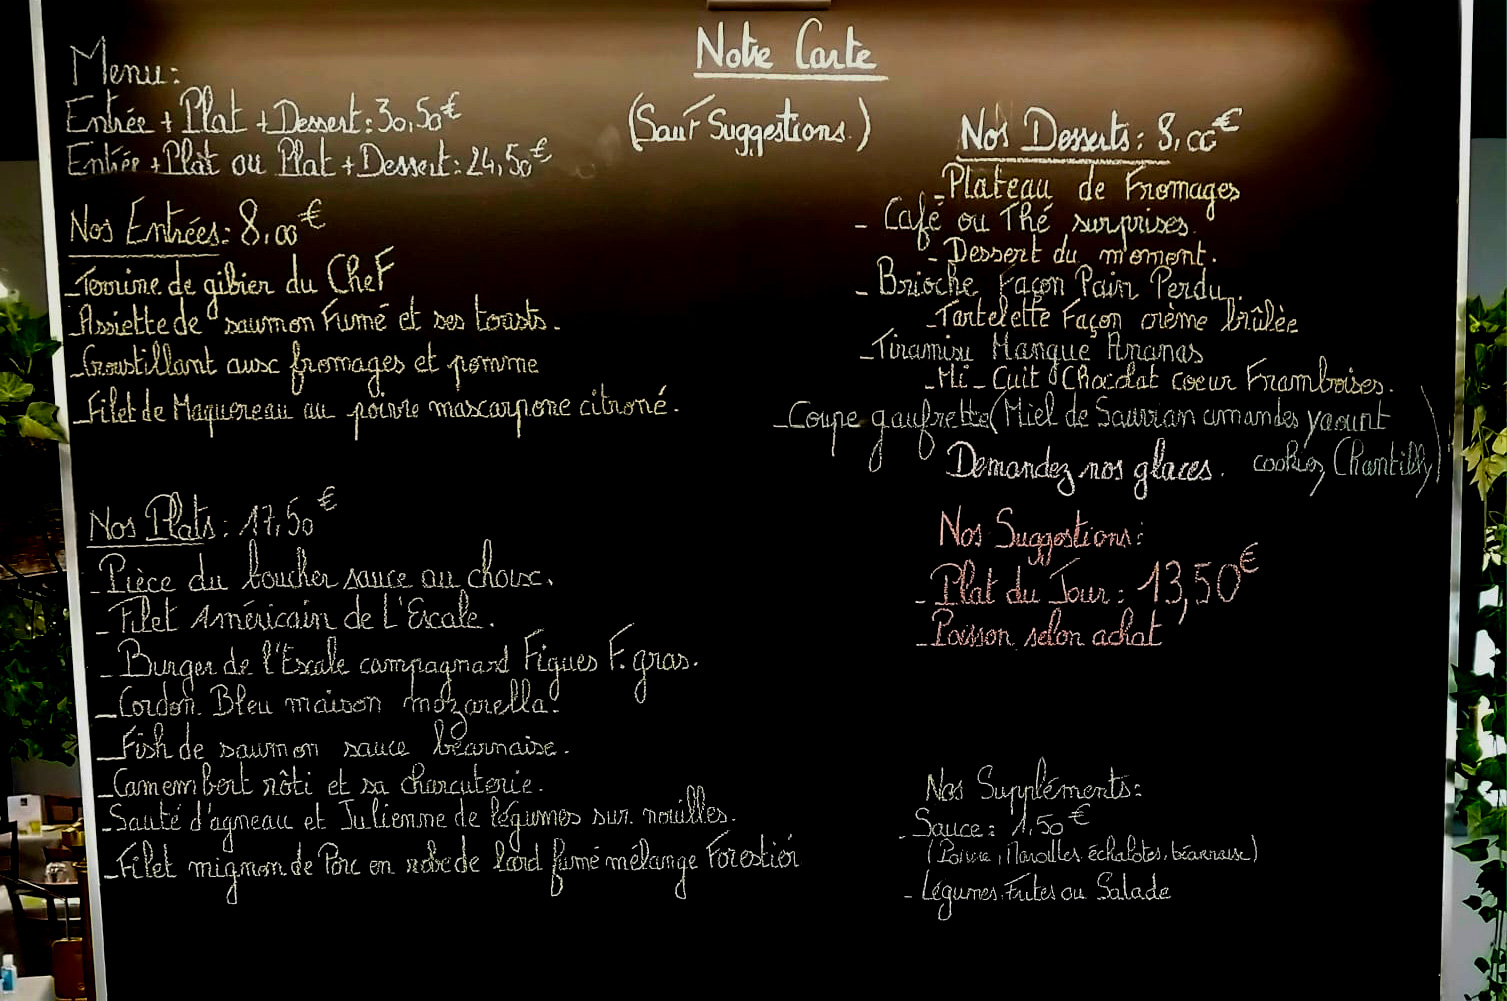 Notre Carte
(Sauf Suggestions.)
Menu:
Entrée + Plat + Dessert: 30,50€
Entrée + Plat ou Plat + Dessert: 24,50€
Nos Entrées: 8,00€
- Terrine de gibier du Chef
- Assiette de saumon Fumé et ses toasts.
- Croustillant aux fromages et pomme
- Filet de Maquereau au poivre mascarpone citroné.
Nos Plats: 17,50€
- Pièce du boucher sauce au choix.
- Filet Américain de L'Escale.
- Burger de l'Escale campagnard Figues F. gras.
- Cordon Bleu maison mozarella.
- Fish de saumon sauce béarnaise.
- Camembert rôti et sa charcuterie.
- Sauté d'agneau et Julienne de légumes sur nouilles.
- Filet mignon de Porc en robe de lard fumé mélange Forestier
Nos Desserts: 8,00€
- Plateau de Fromages
- Café ou Thé surprises.
- Dessert du moment.
- Brioche Façon Pain Perdu.
- Tartelette Façon crème brûlée
- Tiramisu Mangue Ananas
- Mi-Cuit Chocolat coeur Framboises.
- Coupe gaufrette (Miel de Sauvian amandes yaourt
cookies, Chantilly)
Demandez nos glaces.
Nos Suggestions:
- Plat du Jour: 13,50€
- Poisson selon achat
Nos Suppléments:
- Sauce: 1,50€
(Poivre, Maroilles, échalotes, béarnaise)
- Légumes, Frites ou Salade